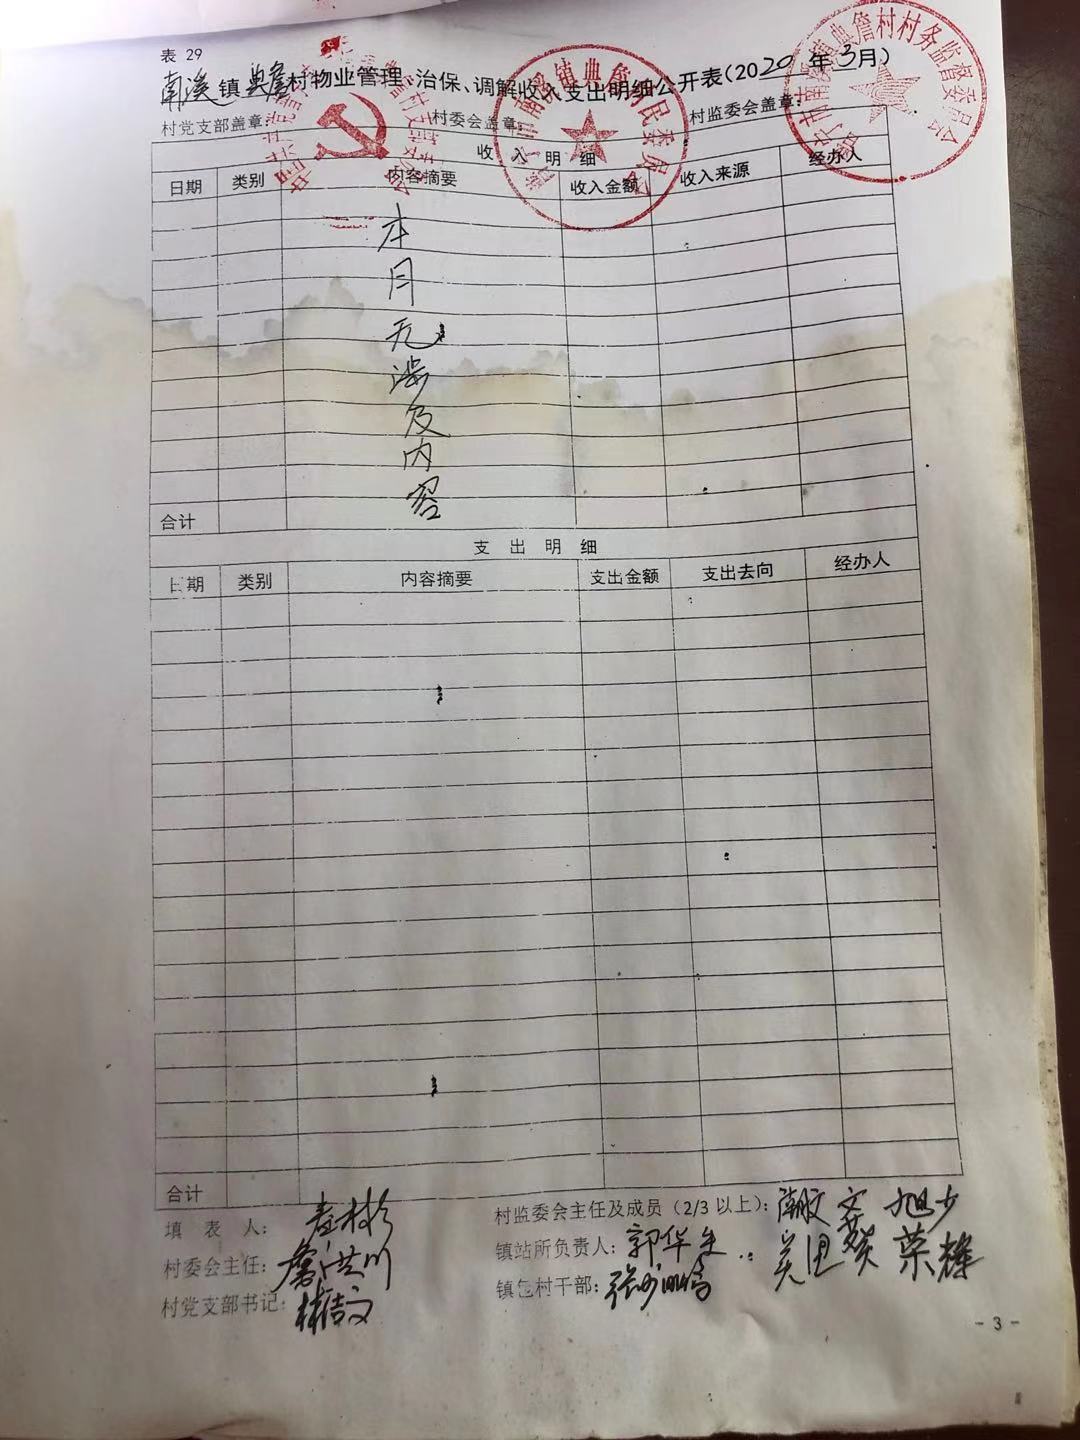 表 29
南溪镇典詹村物业管理、治保、调解收入支出明细公开表(2020年3月)
村党支部盖章: 村委会盖章: 村监委会盖章:
收 入 明 细
日期 类别 内容摘要 收入金额 收入来源 经办人
本月无涉及内容
合计
支 出 明 细
日期 类别 内容摘要 支出金额 支出去向 经办人
合计
填 表 人: 村监委会主任及成员(2/3以上):
村委会主任:詹洪川 镇站所负责人:郭华生
村党支部书记: 镇包村干部:
- 3 -